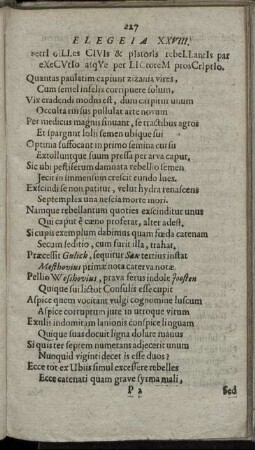 227
ELEGEIA XXVIII.
petrI oLLes CIVIs & pIstorIs rebeLLantIs par
eXeCVtIo atqVe per LICtoreM prosCrIptIo.
Quantas paulatim capiunt zizania vires,
Cum semel infelix corripuere solum,
Vix eradendi modus est, dum carpitur unum
Occulta rursus pullulat arte novum
Per medicus magnus sinuant, se tractibus agros
Et spargunt lolii semen ubique sui
Optima suffocant in primo semina cursu
Extolluntque suum pressa per arva caput,
Sic ubi pestiferum damnata rebellio semen
Jecit in immensum crescit eundo lues.
Excindi se non patitur, velut hydra renascens
Septemplex una nescia morte mori.
Namque rebellantum quoties exscinditur unus
Qui caput è cæno proferat, alter adest,
Si cupis exemplum dabimus quam fœda catenam
Secum seditio, cum furit illa, trahat,
Præcessit Gulich, sequitur San tertius instat
Mesthovius pitimæ nota caterva notæ.
Pellio Weschovius, prava ferus indole Joosten
Quique sui lictor Consulis esse cupit
Aspice quem vocitant vulgi cognomine luscum
Aspice corruptum jure in utroque virum
Exilii indomitam lanionis conspice linguam
Quique suas docuit ligna dolare manus
Si quis ter septem numerans adjecerit unum
Nunquid viginti decet is esse duos?
Ecce tot ex Ubiis simul excessere rebelles
Ecce catenati quam grave syrma mali,
P 2 Sed